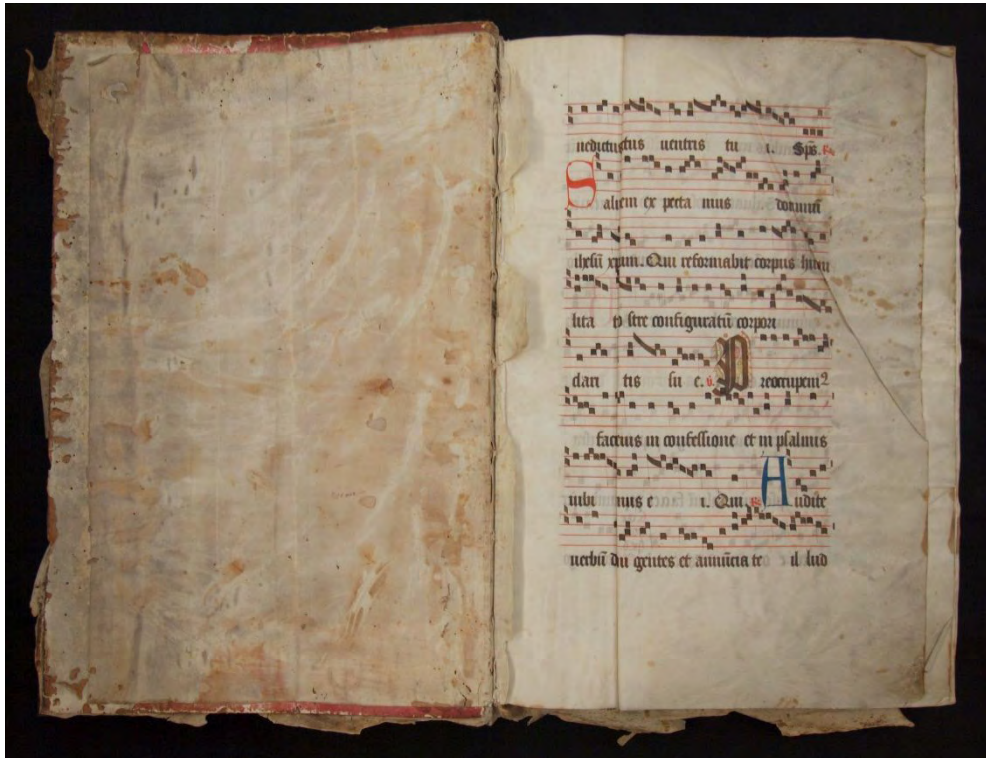 nedictustus uentris tu i. Sp̄s.
Saluem ex pecta mus dominū
ihesū xpm. Qui reformabit corpus humi
lita tis stre configuratū corpori
clari tis su e. v. Preoccupem⁹
faciem in confessione et in psalmis
iubi mus e i. Qui Audite
uerbū dn̄ gentes et annūcia te il lud